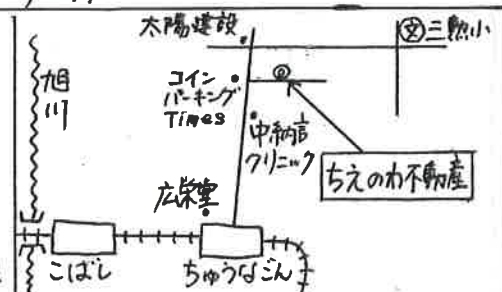 太陽建設
文 三勲小
旭
川
コイン
パーキング
Times
中納言
クリニック
ちえのわ不動産
広栄堂
こばし
ちゅうなごん